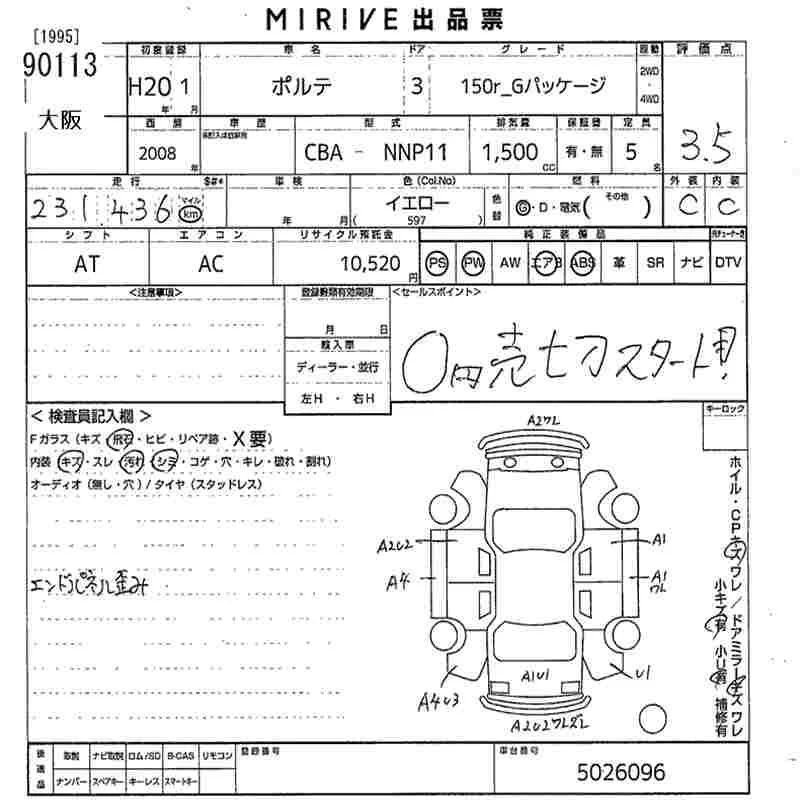 MIRIVE 出品票
[1995]
90113
大阪
初度登録 車名 ドア グレード 駆動 評価点
H20 1 ポルテ 3 150r_Gパッケージ 2WD・4WD
年 月
西暦 車歴 型式 排気量 保証書 定員
2008 CBA - NNP11 1,500 有・無 5 3.5
年 CC 名
走行 車検 色(Col.No) 色替 燃料 外装 内装
231,436 マイル km 年 月 イエロー ( 597 ) G・D・電気( その他 ) C C
シフト エアコン リサイクル預託金 純正装備品
AT AC 10,520円 PS PW AW エアB ABS 革 SR ナビ DTV
<注意事項> <セールスポイント>
月 日
輸入車
ディーラー・並行
左H ・ 右H
0円売七刀スタート!
< 検査員記入欄 > キーロック
Fガラス (キズ・飛石・ヒビ・リペア跡・X要)
内装 (キズ・スレ・汚れ・シミ・コゲ・穴・キレ・破れ・割れ)
オーディオ (無し・穴) / タイヤ (スタッドレス)
エンドパネル歪み
A2ワレ
A2U2 A1
A4 A1ワレ
A1U1
A4U3 U1
A2U2ワレズレ
ホイル・CPキズ ワレ / ドアミラーキズ ワレ
小キズ有 小U有 補修有
後送品 取説 ナビ取説 ロム/SD B-CAS リモコン 登録番号 車台番号
ナンバー スペアキー キーレス スマートキー 5026096